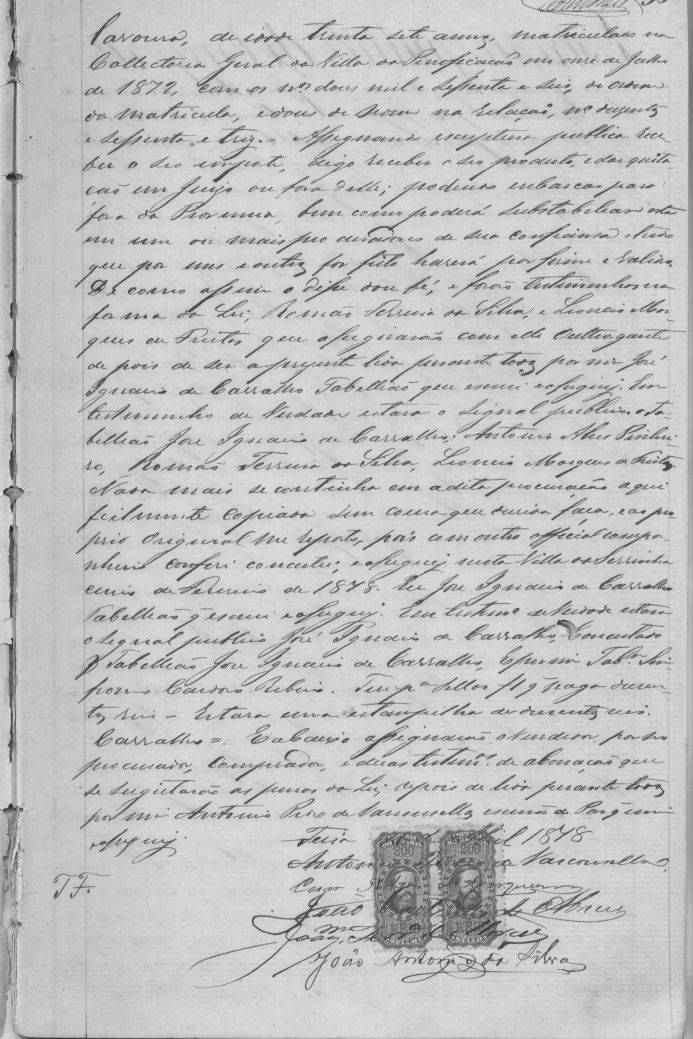 lavoura, de idade trinta sete annos, matriculado na
Collectoria Geral da Villa da Purificação em onze de Julho
de 1872, com os nos dous mil e sessenta e seis, de ordem
da matricula, e dous de ordem na relação, no duzentos
e sessenta e trez. Assignando escriptura publica rece-
ber o seo importe, digo receber o seo producto, e dar quita-
ção em Juizo ou fora delle; podendo embarcar para
fora da Provincia, bem como poderá substabelecer esta
em um ou mais procuradores de sua confiansa e tudo
que por uns e outros for feito haverá por firme e valiozo.
De como assim o disse dou fé, e forão testimunhos na
forma da Lei, Romão Ferreira da Silva, e Leoncio Mar-
ques de Freitas que assignarão com elle Outhorgante
de pois de ser a presente lida perante todos por mim José
Ignacio de Carvalho Tabellião que escrevi e assignei. Em
testimunho de Verdade estava o Signal publico. o Ta-
bellião José Ignacio de Carvalho. Antonio Alves Pinhei-
ro, Romão Ferreira da Silva, Leoncio Marques de Freitas
Nada mais se continha em a dita procuração aqui
fielmente copiada sem cousa que duvida faça, e ao pro-
prio Original me reporto, pois com outro official compa-
nheiro conferi concertei, e assignei nesta Villa da Serrinha
de Fevereiro de 1878. Eu José Ignacio de Carvalho
Tabellião q escrevi e assignei. Em testimo de Verdade estava
o Signal publico José Ignacio de Carvalho, Concertado
Tabellião José Ignacio de Carvalho, E por mim Tabam Sim-
Cardoso Ribeiro. pagou duzen-
tos reis - Estava uma estampilha de duzentos reis.
Carvalho =. E abaixo assignarão o Vendedor, por seo
procurador, Comprador, e duas testims. de abonação que
se sugeitarão as penas da Lei depois de lida perante todos
por mim Antonio de Vasconcellos escrivão de Paz q escrevi
e assignei.
Feira 1878
Antonio Vasconcellos.
João de Abreu
TF.
João
João Antonio da Silva